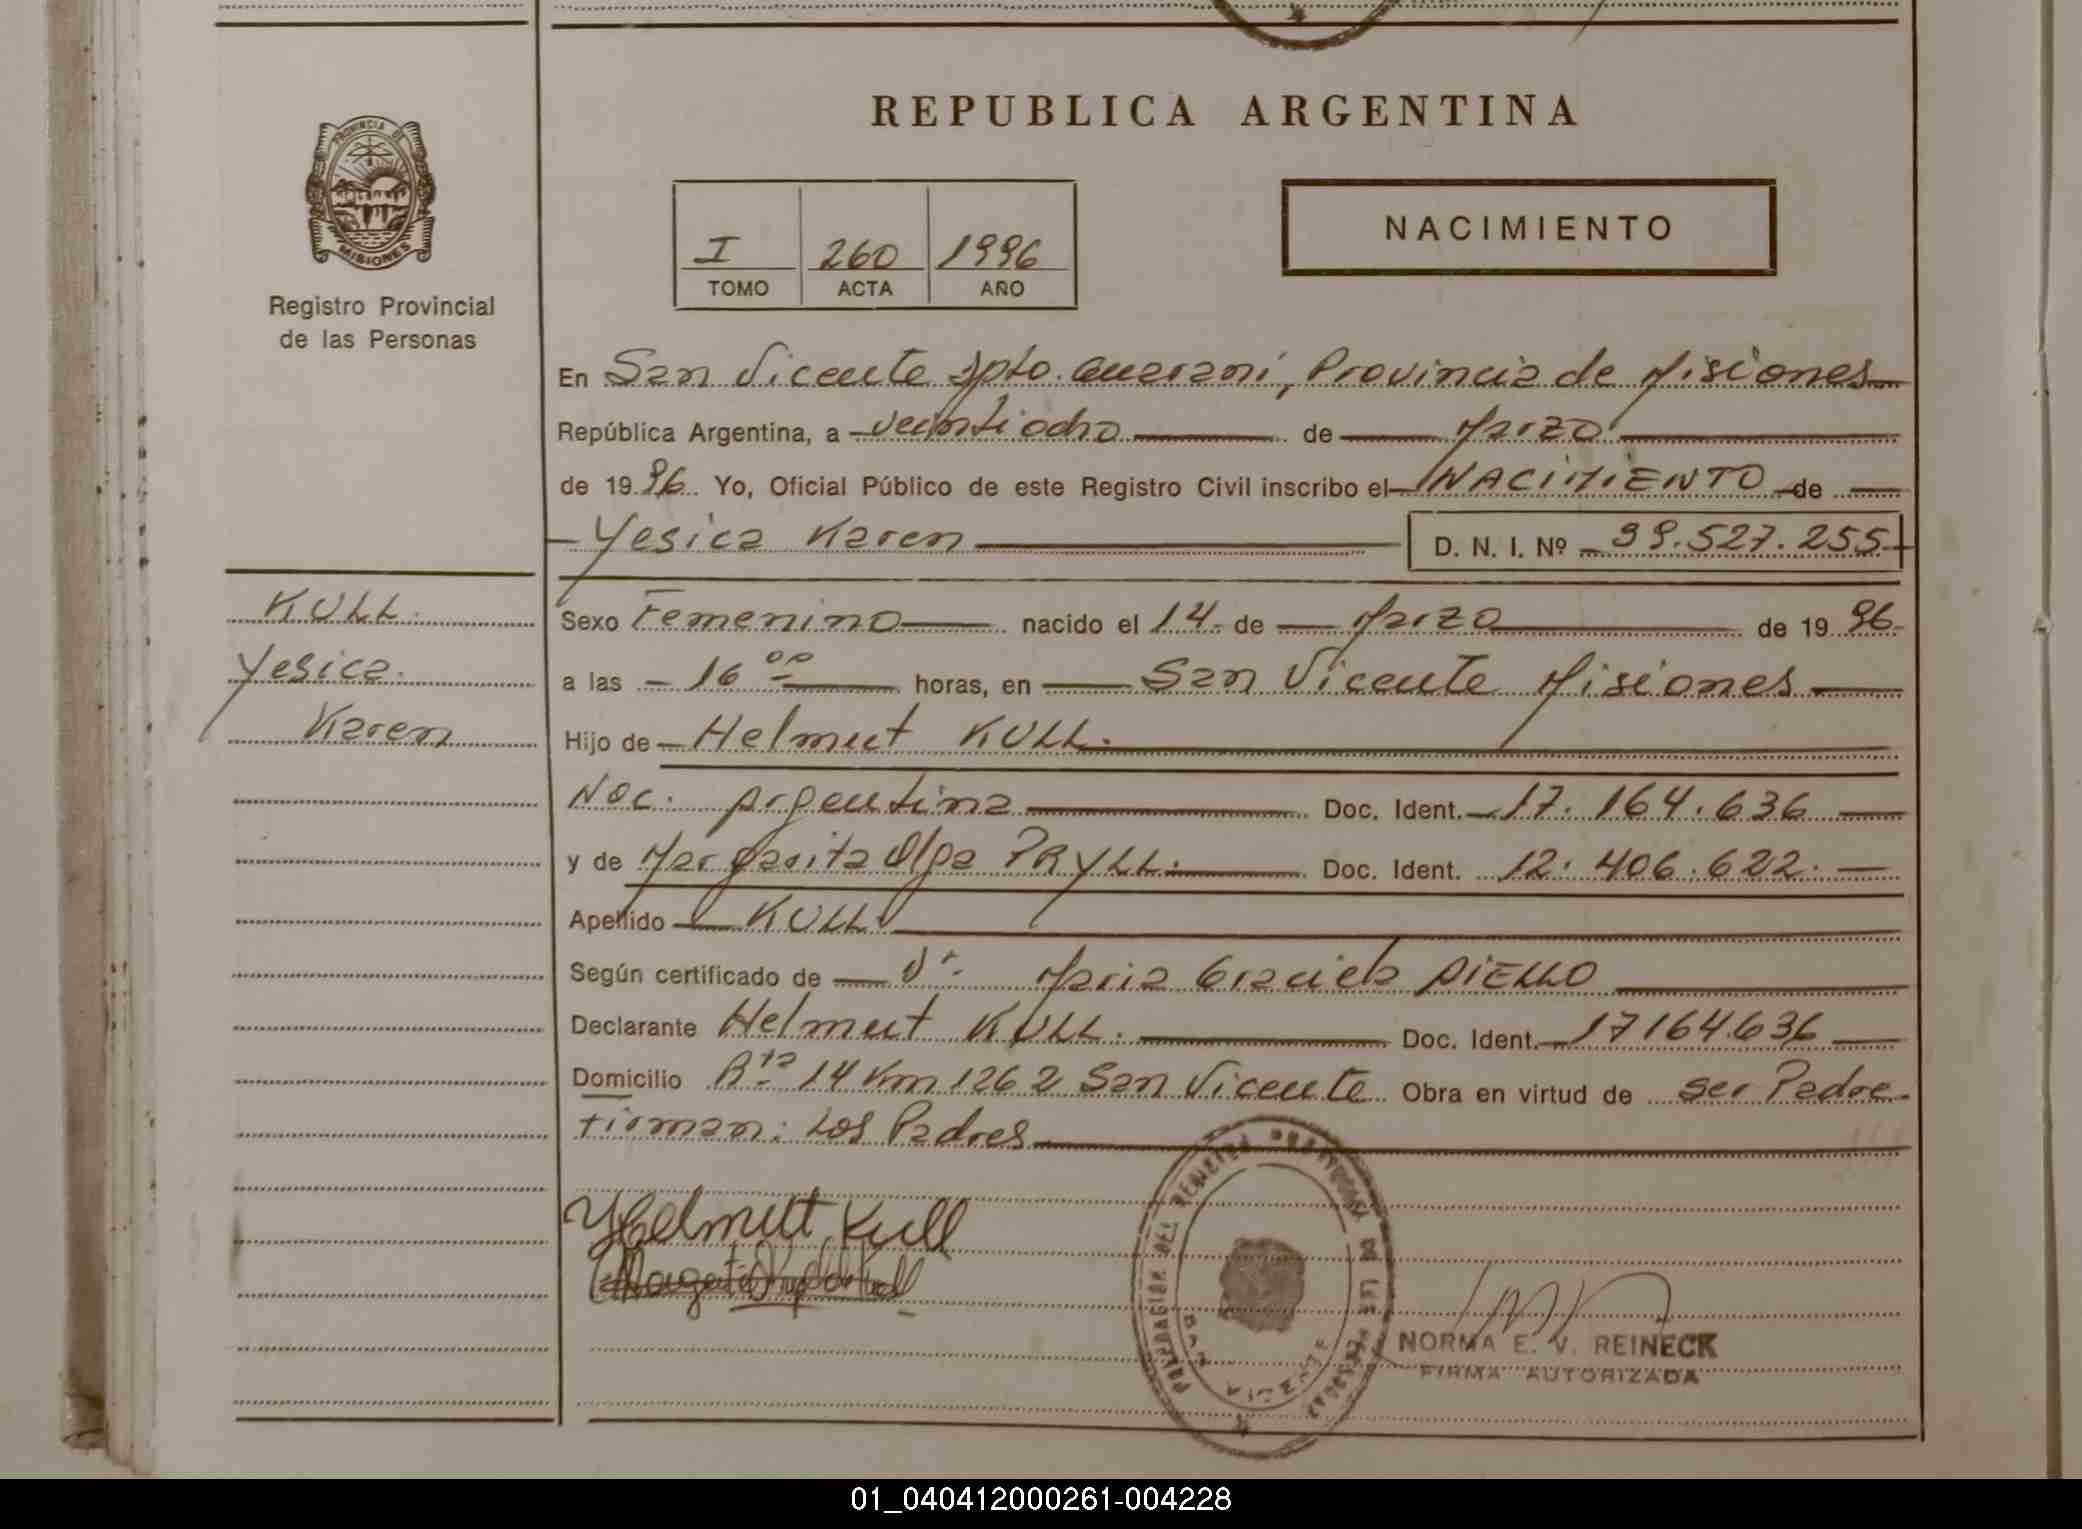 REPUBLICA ARGENTINA
PROVINCIA DE MISIONES
Registro Provincial
de las Personas
I 260 1996
TOMO ACTA AÑO
NACIMIENTO
En San Vicente Dpto. Guaraní, Provincia de Misiones
República Argentina, a veintiocho de Marzo
de 1996. Yo, Oficial Público de este Registro Civil inscribo el NACIMIENTO de
Yesica Karen D. N. I. Nº 39.527.255
KULL.
Yesica.
Karen
Sexo Femenino nacido el 14 de Marzo de 1996
a las 16 00 horas, en San Vicente Misiones
Hijo de Helmut KULL.
Nac. Argentina Doc. Ident. 17.164.636
y de Margarita Olga PRYLL. Doc. Ident. 12.406.622.
Apellido KULL
Según certificado de Dra. Maria Graciela AIELLO
Declarante Helmut KULL. Doc. Ident. 17164.636
Domicilio Rta 14 Km 1262 San Vicente Obra en virtud de ser Padre
Firman: Los Padres
Helmutt Kull
NORMA E. V. REINECK
FIRMA AUTORIZADA
01_040412000261-004228